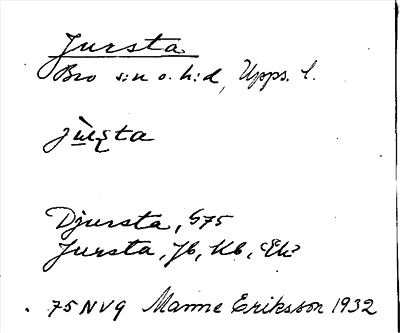 Jursta
Bro s:n o. h:d, Upps. l.
Djursta, G75
Jursta, Jb, Kb, Ek
75 NV9 Manne Eriksson 1932